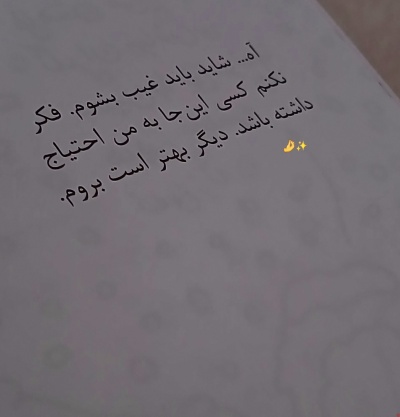 آه... شاید باید غیب بشوم. فکر
نکنم کسی این‌جا به من احتیاج
داشته باشد. دیگر بهتر است بروم.